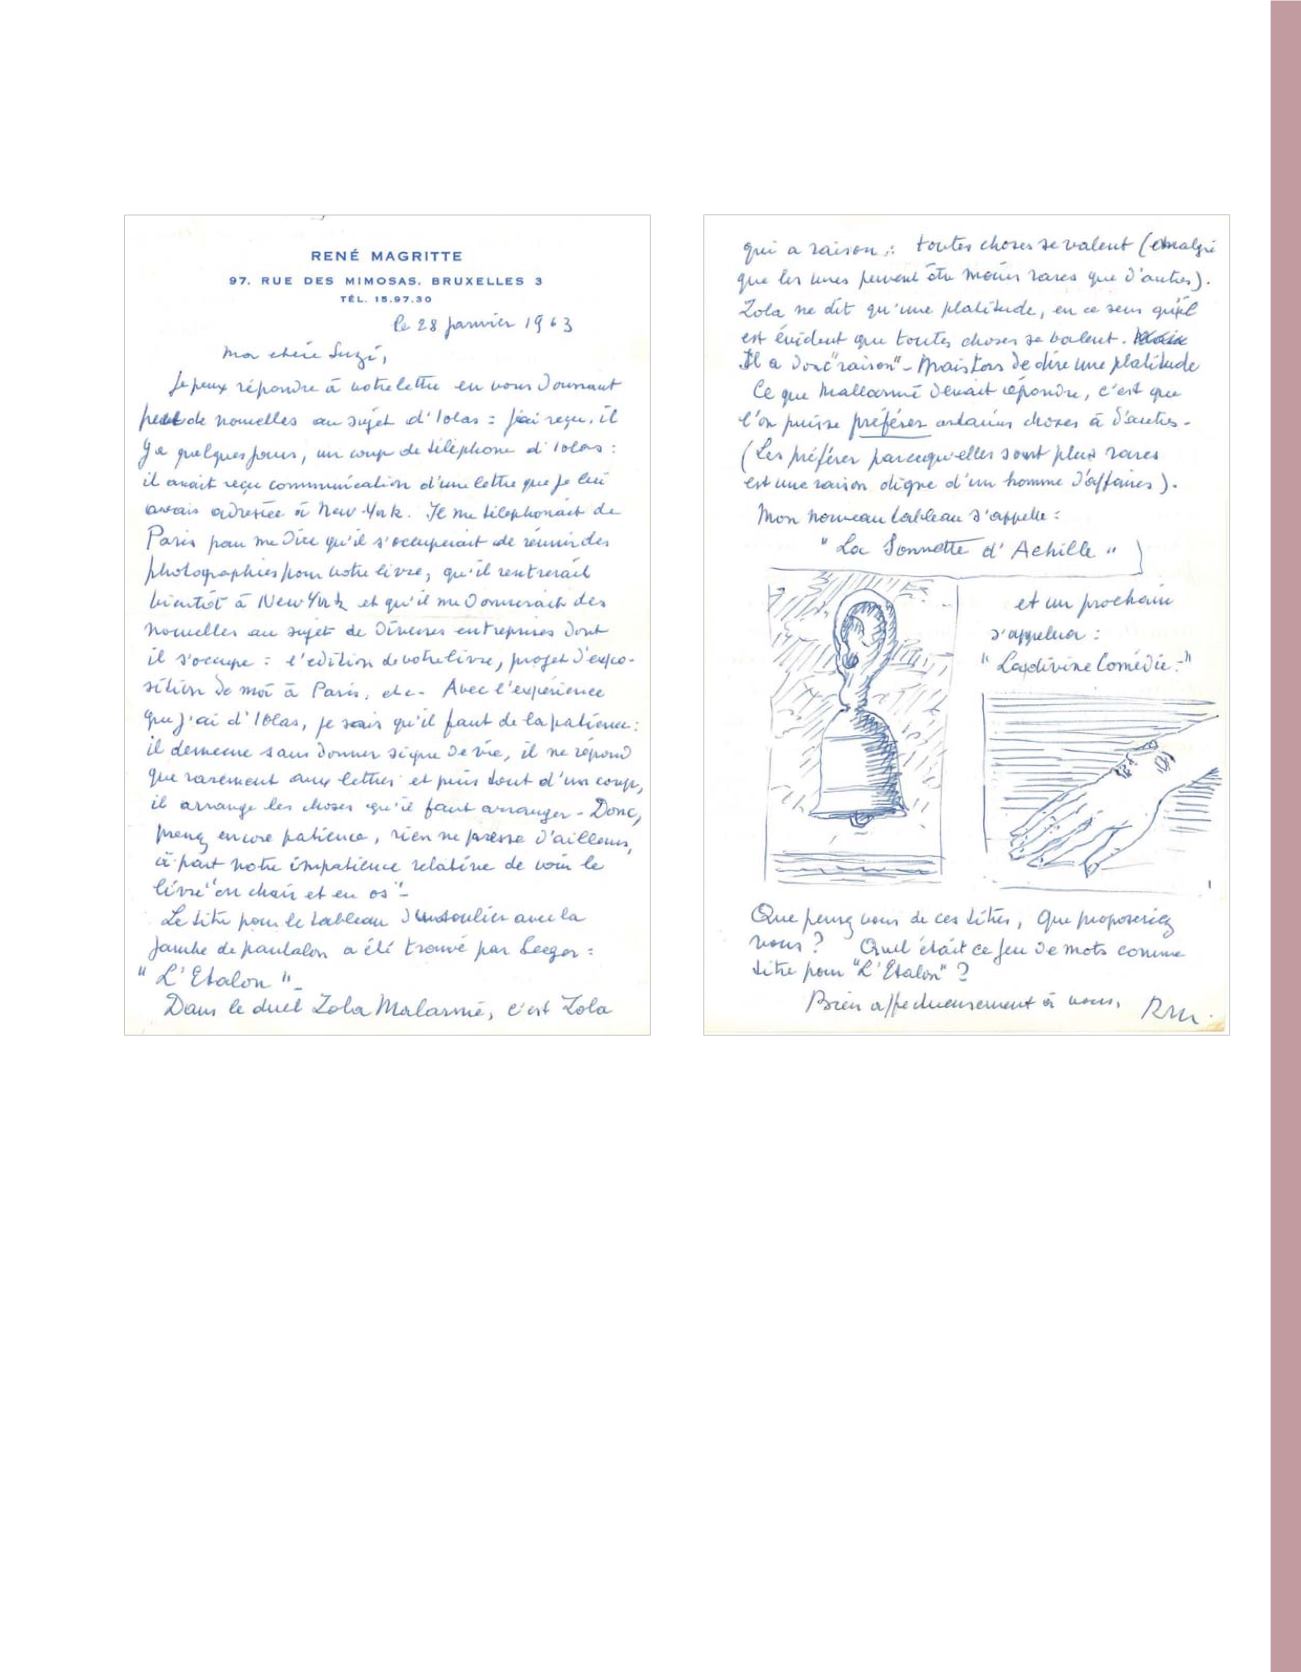 RENÉ MAGRITTE
97, RUE DES MIMOSAS, BRUXELLES 3
TÉL. 15.97.30
le 28 janvier 1963
Ma chère Suzi,
Je peux répondre à votre lettre en vous donnant
peu de nouvelles au sujet d'Iolas : j'ai reçu, il
y a quelques jours, un coup de téléphone d'Iolas :
il avait reçu communication d'une lettre que je lui
avais adressée à New-York. Il me téléphonait de
Paris pour me dire qu'il s'occuperait de réunir des
photographies pour votre livre, qu'il rentrerait
bientôt à New York et qu'il me donnerait des
nouvelles au sujet de diverses entreprises dont
il s'occupe : l'edition de votre livre, projet d'expo-
sition de moi à Paris, etc - Avec l'expérience
que j'ai d'Iolas, je sais qu'il faut de la patience :
il demeure sans donner signe de vie, il ne répond
que rarement aux lettres et puis tout d'un coup,
il arrange les choses qu'il faut arranger - Donc,
prenez encore patience, rien ne presse d'ailleurs,
à part notre impatience relative de voir le
livre "en chair et en os" -
Le titre pour le tableau du soulier avec la
jambe de pantalon a été trouvé par Seeger :
"L'Etalon" -
Dans le duel Zola Malarmé, c'est Zola
qui a raison : toutes choses se valent (malgré
que les unes peuvent être moins rares que d'autres).
Zola ne dit qu'une platitude, en ce sens qu'il
est évident que toutes choses se valent.
Il a donc "raison" - Mais de dire une platitude
Ce que Mallarmé devait répondre, c'est que
l'on puisse préférer certaines choses à d'autres -
(Les préférer parcequ'elles sont plus rares
est une raison digne d'un homme d'affaires).
Mon nouveau tableau s'appelle :
"La Sonnette d'Achille"
et un prochain
s'appellera :
"La divine Comédie"
Que pensez vous de ces titres, que proposeriez
vous ? Quel était ce jeu de mots comme
titre pour "L'Etalon" ?
Bien affectueusement à vous,
RM.